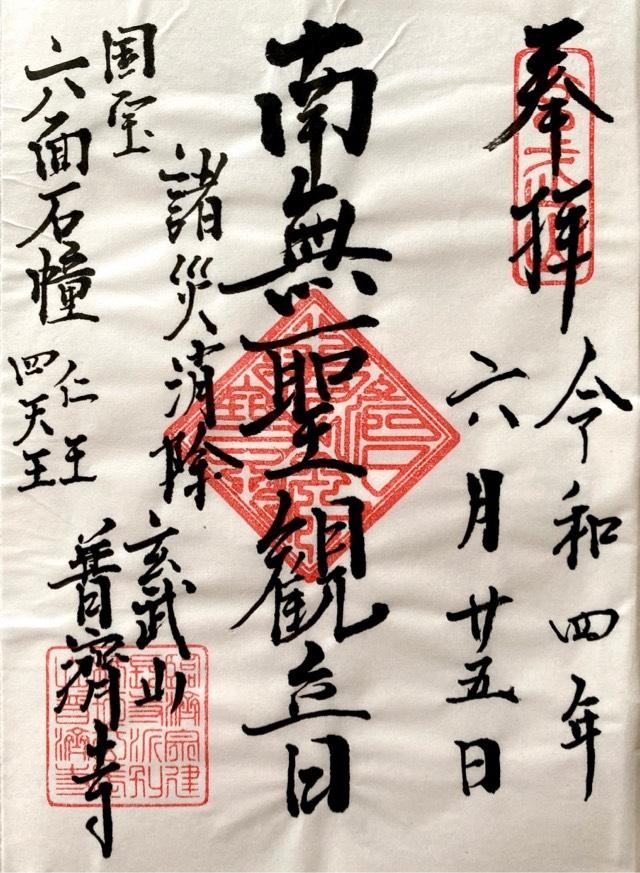 奉拝
令和四年
六月廿五日
南無聖観立日
諸災消除
玄武山
普濟寺
国宝
六面石幢
仁王
四天王